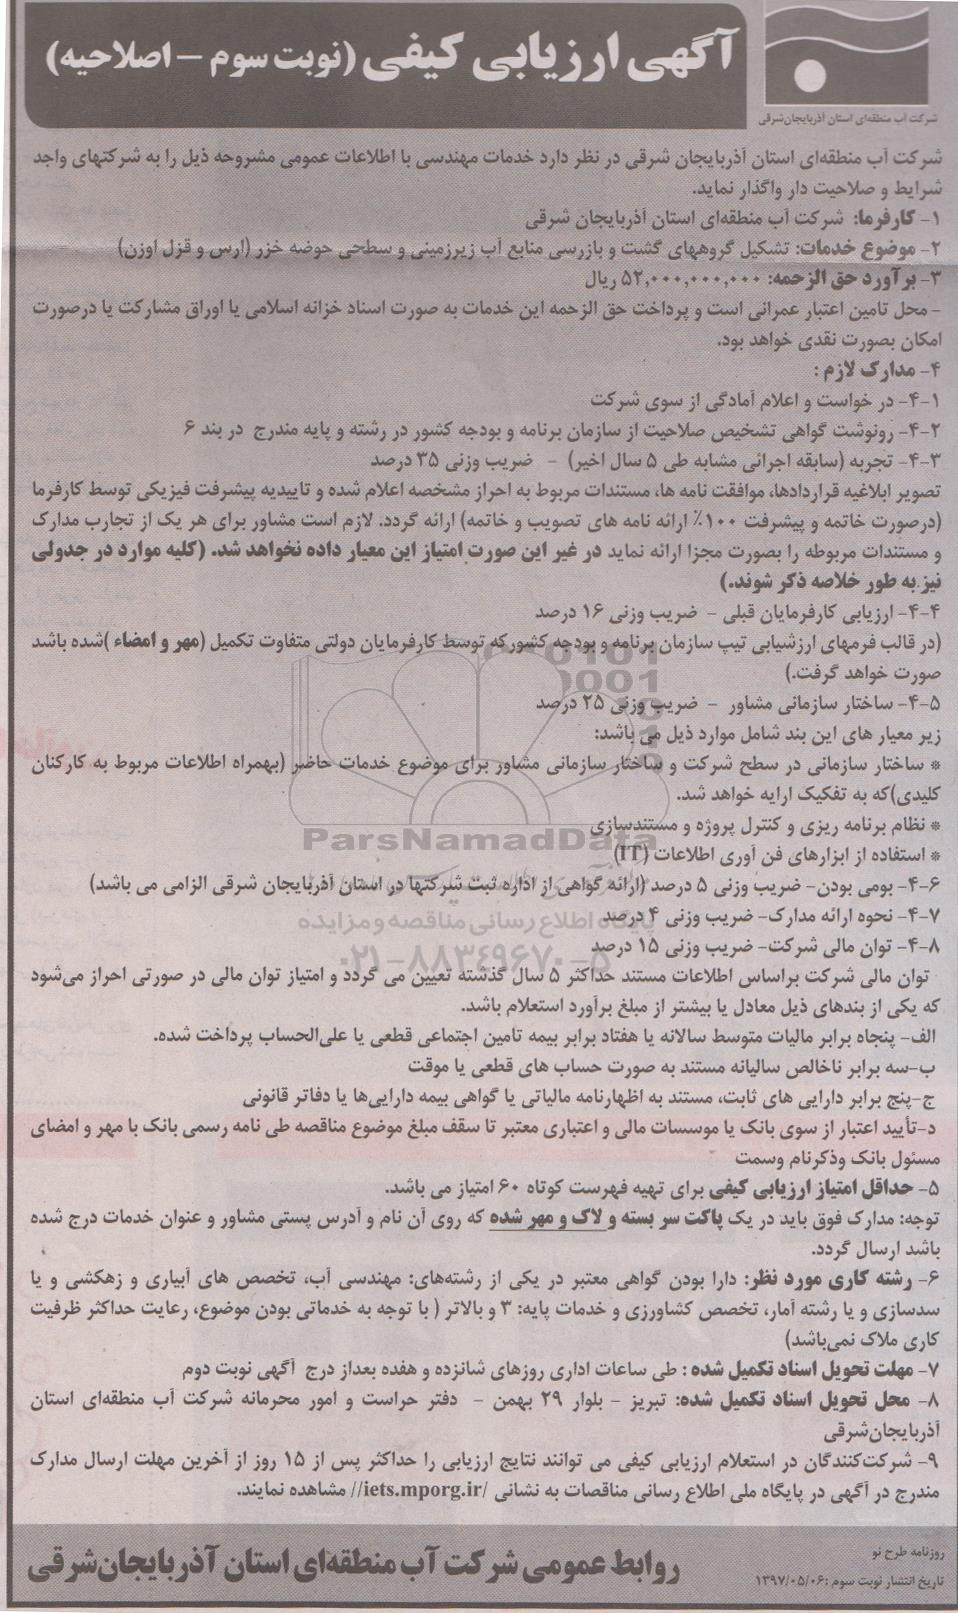 آگهی ارزیابی کیفی (نوبت سوم – اصلاحیه)
شرکت آب منطقه‌ای استان آذربایجان‌شرقی
شرکت آب منطقه‌ای استان آذربایجان شرقی در نظر دارد خدمات مهندسی با اطلاعات عمومی مشروحه ذیل را به شرکتهای واجد
شرایط و صلاحیت دار واگذار نماید.
۱- کارفرما: شرکت آب منطقه‌ای استان آذربایجان شرقی
۲- موضوع خدمات: تشکیل گروههای گشت و بازرسی منابع آب زیرزمینی و سطحی حوضه خزر (ارس و قزل اوزن)
۳- برآورد حق الزحمه: ۵۲,۰۰۰,۰۰۰,۰۰۰ ریال
- محل تامین اعتبار عمرانی است و پرداخت حق الزحمه این خدمات به صورت اسناد خزانه اسلامی یا اوراق مشارکت یا درصورت
امکان بصورت نقدی خواهد بود.
۴- مدارک لازم :
۴-۱- در خواست و اعلام آمادگی از سوی شرکت
۴-۲- رونوشت گواهی تشخیص صلاحیت از سازمان برنامه و بودجه کشور در رشته و پایه مندرج در بند ۶
۴-۳- تجربه (سابقه اجرائی مشابه طی ۵ سال اخیر) - ضریب وزنی ۳۵ درصد
تصویر ابلاغیه قراردادها، موافقت نامه ها، مستندات مربوط به احراز مشخصه اعلام شده و تاییدیه پیشرفت فیزیکی توسط کارفرما
(درصورت خاتمه و پیشرفت ۱۰۰٪ ارائه نامه های تصویب و خاتمه) ارائه گردد. لازم است مشاور برای هر یک از تجارب مدارک
و مستندات مربوطه را بصورت مجزا ارائه نماید در غیر این صورت امتیاز این معیار داده نخواهد شد. (کلیه موارد در جدولی
نیز به طور خلاصه ذکر شوند.)
۴-۴- ارزیابی کارفرمایان قبلی - ضریب وزنی ۱۶ درصد
(در قالب فرمهای ارزشیابی تیپ سازمان برنامه و بودجه کشورکه توسط کارفرمایان دولتی متفاوت تکمیل (مهر و امضاء )شده باشد
صورت خواهد گرفت.)
۴-۵- ساختار سازمانی مشاور - ضریب وزنی ۲۵ درصد
زیر معیار های این بند شامل موارد ذیل می باشد:
* ساختار سازمانی در سطح شرکت و ساختار سازمانی مشاور برای موضوع خدمات حاضر (بهمراه اطلاعات مربوط به کارکنان
کلیدی)که به تفکیک ارایه خواهد شد.
* نظام برنامه ریزی و کنترل پروژه و مستندسازی
ParsNamadData
* استفاده از ابزارهای فن آوری اطلاعات (IT)
۴-۶- بومی بودن- ضریب وزنی ۵ درصد (ارائه گواهی از اداره ثبت شرکتها در استان آذربایجان شرقی الزامی می باشد)
۴-۷- نحوه ارائه مدارک- ضریب وزنی ۴ درصد
پایگاه اطلاع رسانی مناقصه و مزایده
۴-۸- توان مالی شرکت- ضریب وزنی ۱۵ درصد
۰۲۱-۸۸۳۴۹۶۷۰-۵
توان مالی شرکت براساس اطلاعات مستند حداکثر ۵ سال گذشته تعیین می گردد و امتیاز توان مالی در صورتی احراز می‌شود
که یکی از بندهای ذیل معادل یا بیشتر از مبلغ برآورد استعلام باشد.
الف- پنجاه برابر مالیات متوسط سالانه یا هفتاد برابر بیمه تامین اجتماعی قطعی یا علی‌الحساب پرداخت شده.
ب-سه برابر ناخالص سالیانه مستند به صورت حساب های قطعی یا موقت
ج-پنج برابر دارایی های ثابت، مستند به اظهارنامه مالیاتی یا گواهی بیمه دارایی‌ها یا دفاتر قانونی
د-تأیید اعتبار از سوی بانک یا موسسات مالی و اعتباری معتبر تا سقف مبلغ موضوع مناقصه طی نامه رسمی بانک با مهر و امضای
مسئول بانک وذکرنام وسمت
۵- حداقل امتیاز ارزیابی کیفی برای تهیه فهرست کوتاه ۶۰ امتیاز می باشد.
توجه: مدارک فوق باید در یک پاکت سر بسته و لاک و مهر شده که روی آن نام و آدرس پستی مشاور و عنوان خدمات درج شده
باشد ارسال گردد.
۶- رشته کاری مورد نظر: دارا بودن گواهی معتبر در یکی از رشته‌های: مهندسی آب، تخصص های آبیاری و زهکشی و یا
سدسازی و یا رشته آمار، تخصص کشاورزی و خدمات پایه: ۳ و بالاتر ( با توجه به خدماتی بودن موضوع، رعایت حداکثر ظرفیت
کاری ملاک نمی‌باشد)
۷- مهلت تحویل اسناد تکمیل شده : طی ساعات اداری روزهای شانزده و هفده بعداز درج آگهی نوبت دوم
۸- محل تحویل اسناد تکمیل شده: تبریز - بلوار ۲۹ بهمن - دفتر حراست و امور محرمانه شرکت آب منطقه‌ای استان
آذربایجان‌شرقی
۹- شرکت‌کنندگان در استعلام ارزیابی کیفی می توانند نتایج ارزیابی را حداکثر پس از ۱۵ روز از آخرین مهلت ارسال مدارک
مندرج در آگهی در پایگاه ملی اطلاع رسانی مناقصات به نشانی /iets.mporg.ir// مشاهده نمایند.
روزنامه طرح نو
تاریخ انتشار نوبت سوم :۱۳۹۷/۰۵/۰۶
روابط عمومی شرکت آب منطقه‌ای استان آذربایجان‌شرقی